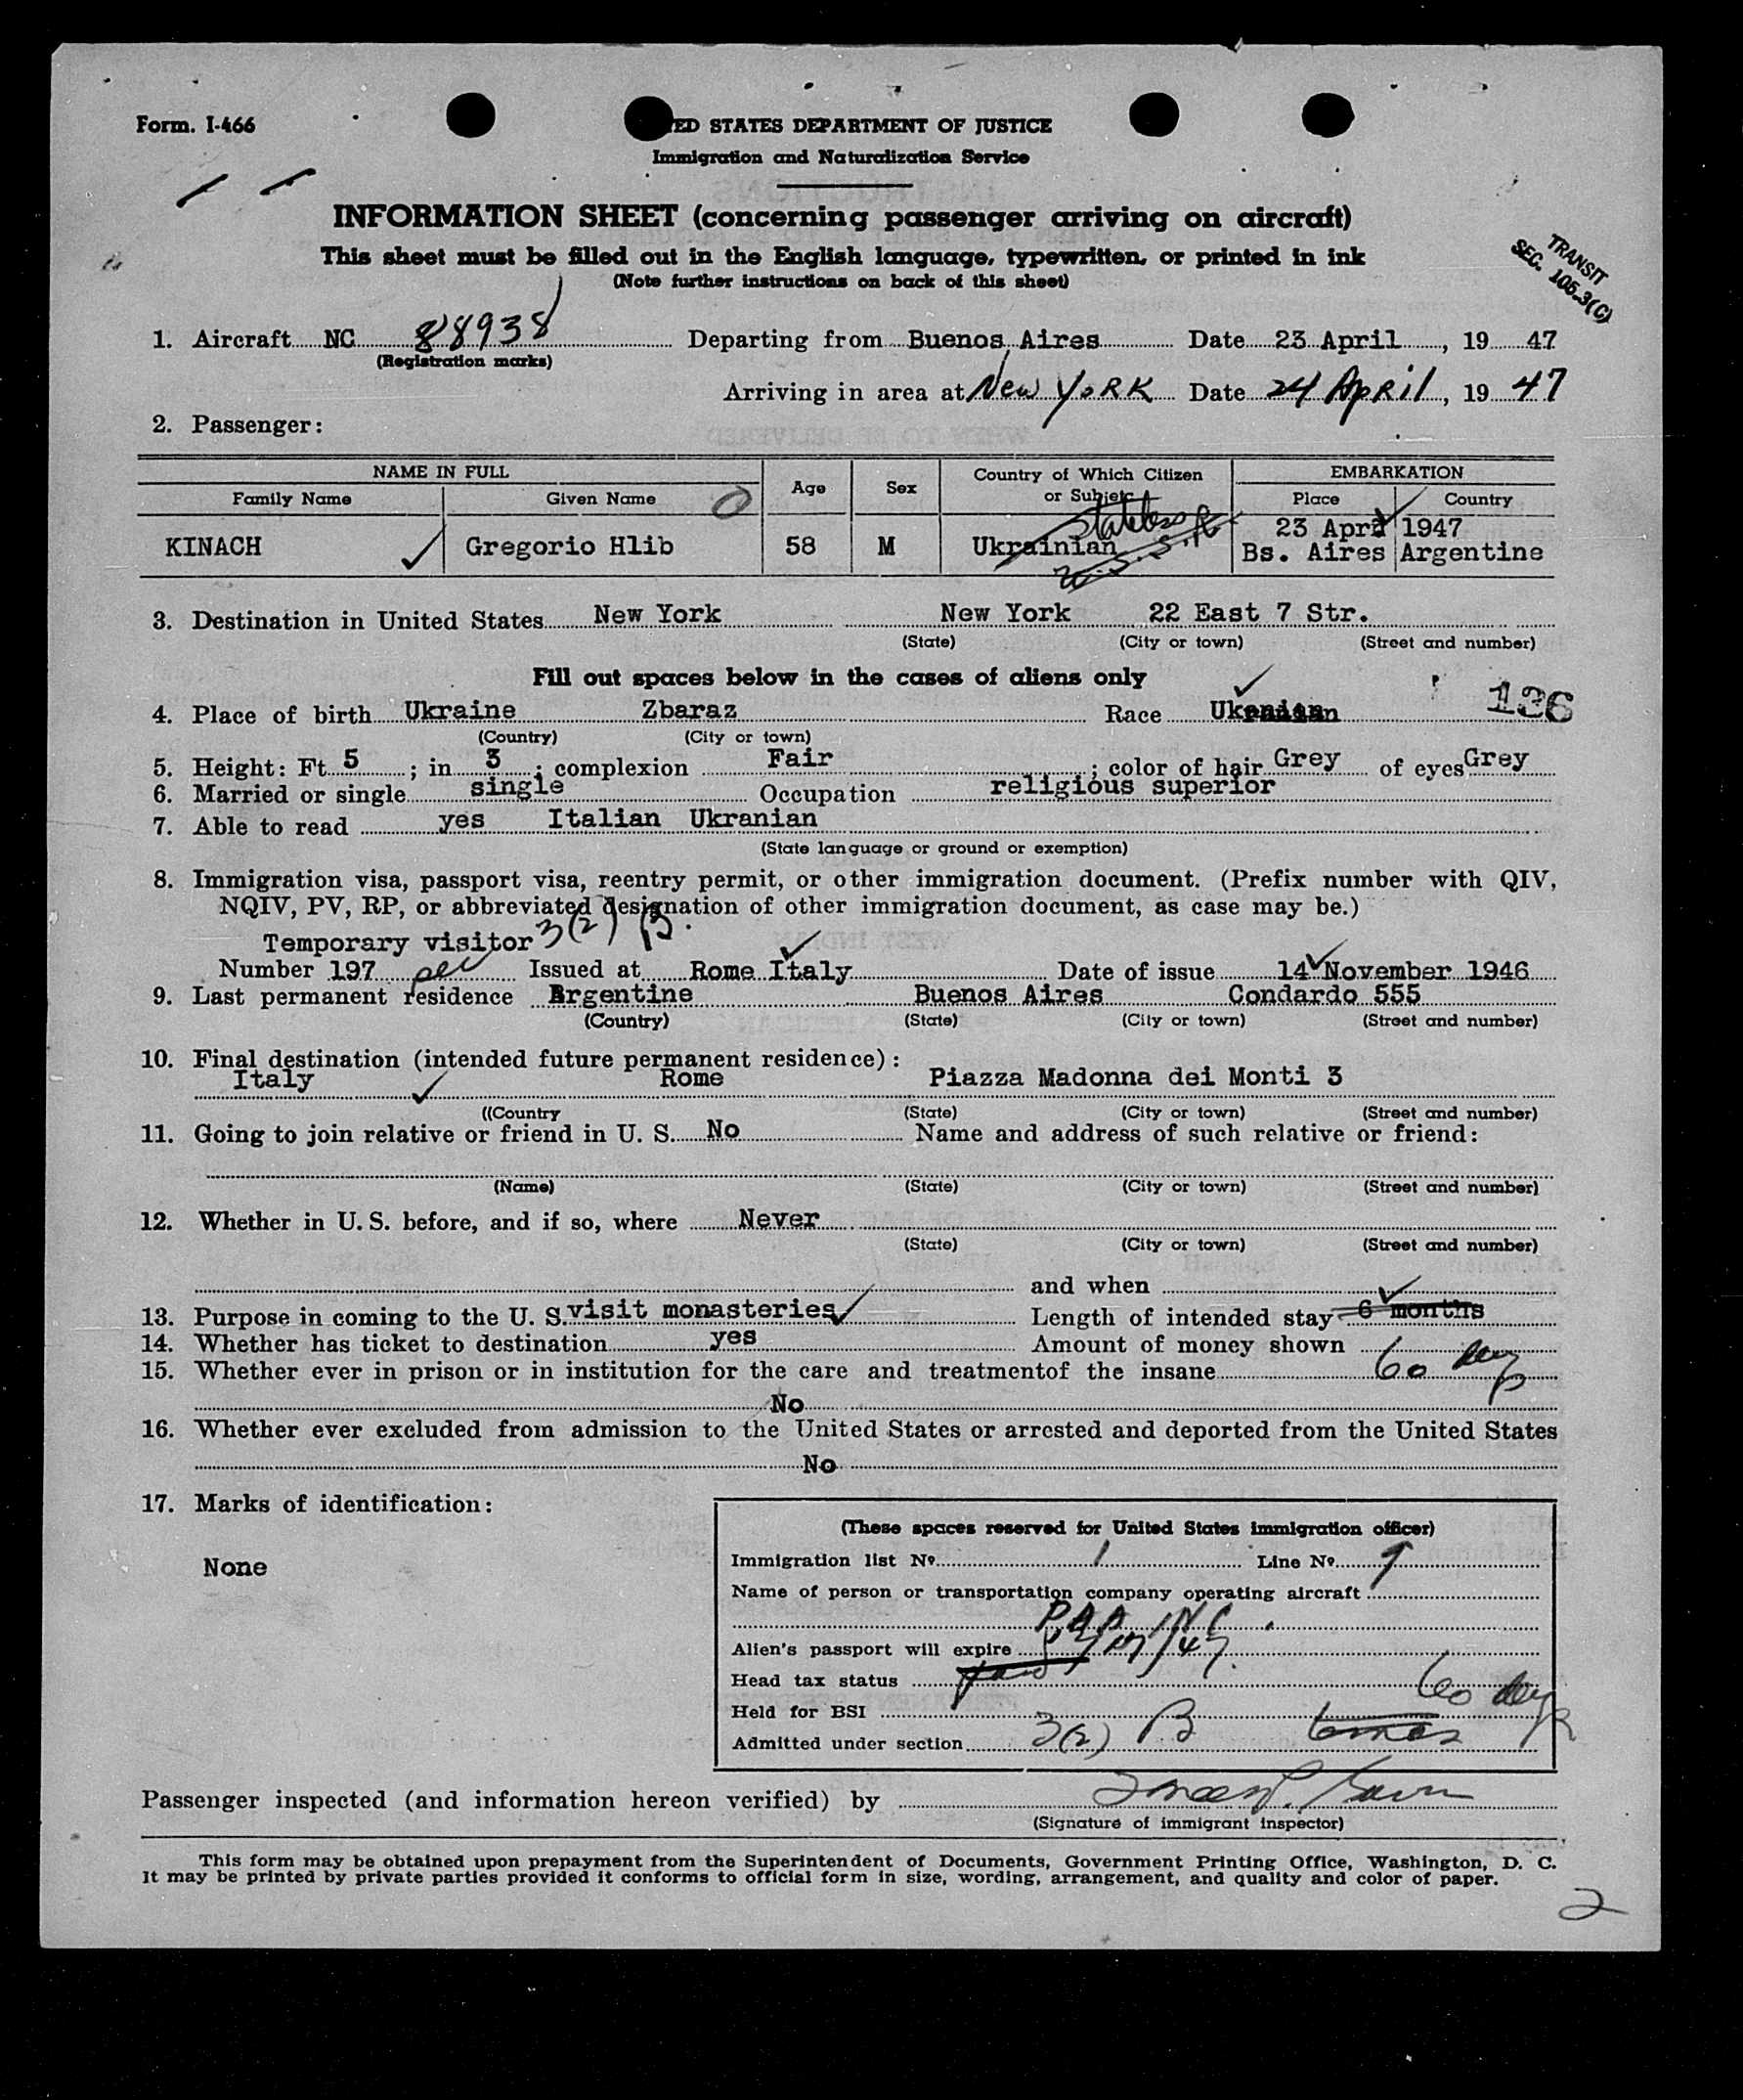 Form. I-466
ED STATES DEPARTMENT OF JUSTICE
Immigration and Naturalization Service
INFORMATION SHEET (concerning passenger arriving on aircraft)
This sheet must be filled out in the English language, typewritten, or printed in ink
(Note further instructions on back of this sheet)
TRANSIT
SEC. 105.3(C)
1. Aircraft NC 88938 Departing from Buenos Aires Date 23 April, 19 47
(Registration marks)
Arriving in area at New YORK Date 24 April, 19 47
2. Passenger:
NAME IN FULL Age Sex Country of Which Citizen or Subject EMBARKATION
Family Name Given Name Place Country
Stateless
23 April 1947
KINACH Gregorio Hlib 58 M Ukrainian Bs. Aires Argentine
U.S.S.R
3. Destination in United States New York New York 22 East 7 Str.
(State) (City or town) (Street and number)
Fill out spaces below in the cases of aliens only
136
4. Place of birth Ukraine Zbaraz Race
(Country) (City or town)
5. Height: Ft. 5 ; in 3 ; complexion Fair ; color of hair Grey of eyes Grey
6. Married or single single Occupation religious superior
7. Able to read yes Italian Ukranian
(State language or ground or exemption)
8. Immigration visa, passport visa, reentry permit, or other immigration document. (Prefix number with QIV,
NQIV, PV, RP, or abbreviated designation of other immigration document, as case may be.)
Temporary visitor 3(2) B.
Number 197 Issued at Rome Italy Date of issue 14 November 1946
9. Last permanent residence Argentine Buenos Aires Condardo 555
(Country) (State) (City or town) (Street and number)
10. Final destination (intended future permanent residence):
Italy Rome Piazza Madonna dei Monti 3
((Country (State) (City or town) (Street and number)
11. Going to join relative or friend in U. S. No Name and address of such relative or friend:
(Name) (State) (City or town) (Street and number)
12. Whether in U. S. before, and if so, where Never
(State) (City or town) (Street and number)
and when
13. Purpose in coming to the U. S. visit monasteries Length of intended stay 6 months
14. Whether has ticket to destination yes Amount of money shown
15. Whether ever in prison or in institution for the care and treatmentof the insane 60 days
No
16. Whether ever excluded from admission to the United States or arrested and deported from the United States
No
17. Marks of identification:
None
(These spaces reserved for United States immigration officer)
Immigration list No. 1 Line No. 9
Name of person or transportation company operating aircraft
P.A.A. INC.
Alien's passport will expire
Head tax status
60 days
Held for BSI
Admitted under section 3(2) B 6 mos
Passenger inspected (and information hereon verified) by
(Signature of immigrant inspector)
This form may be obtained upon prepayment from the Superintendent of Documents, Government Printing Office, Washington, D. C.
It may be printed by private parties provided it conforms to official form in size, wording, arrangement, and quality and color of paper.
2